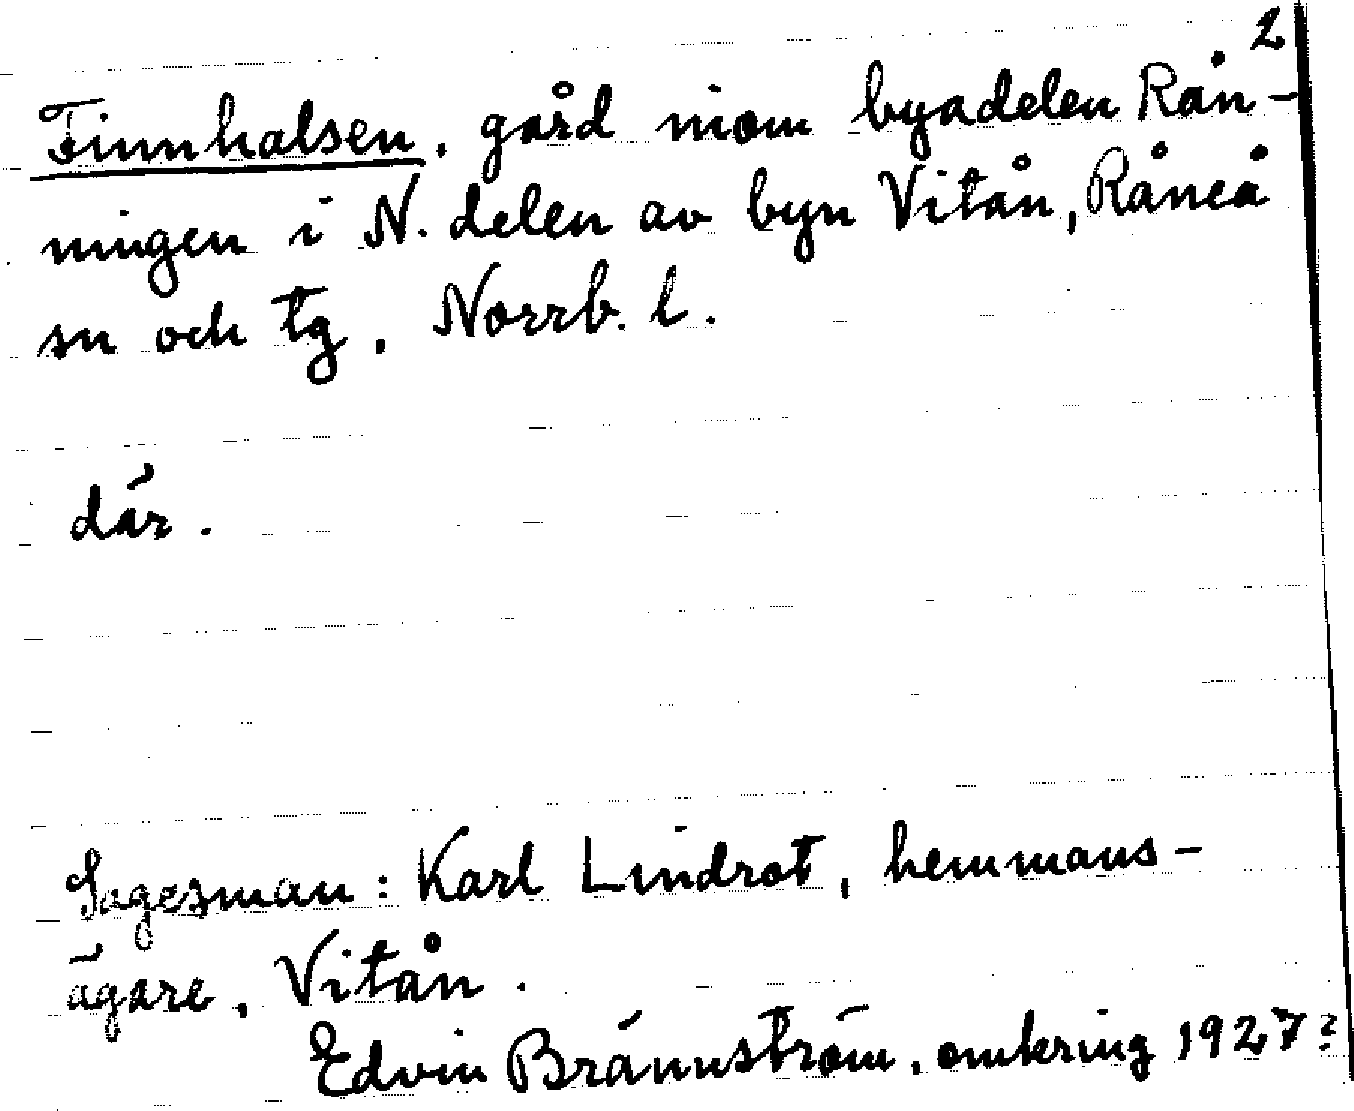 2
Finnhalsen, gård inom byadelen Rån-
ningen i N. delen av byn Vitån, Råneå
sn och tg, Norrb. l.
där.
Sagesman: Karl Lindrot, hemmans-
ägare, Vitån.
Edvin Brännström, omkring 1927?